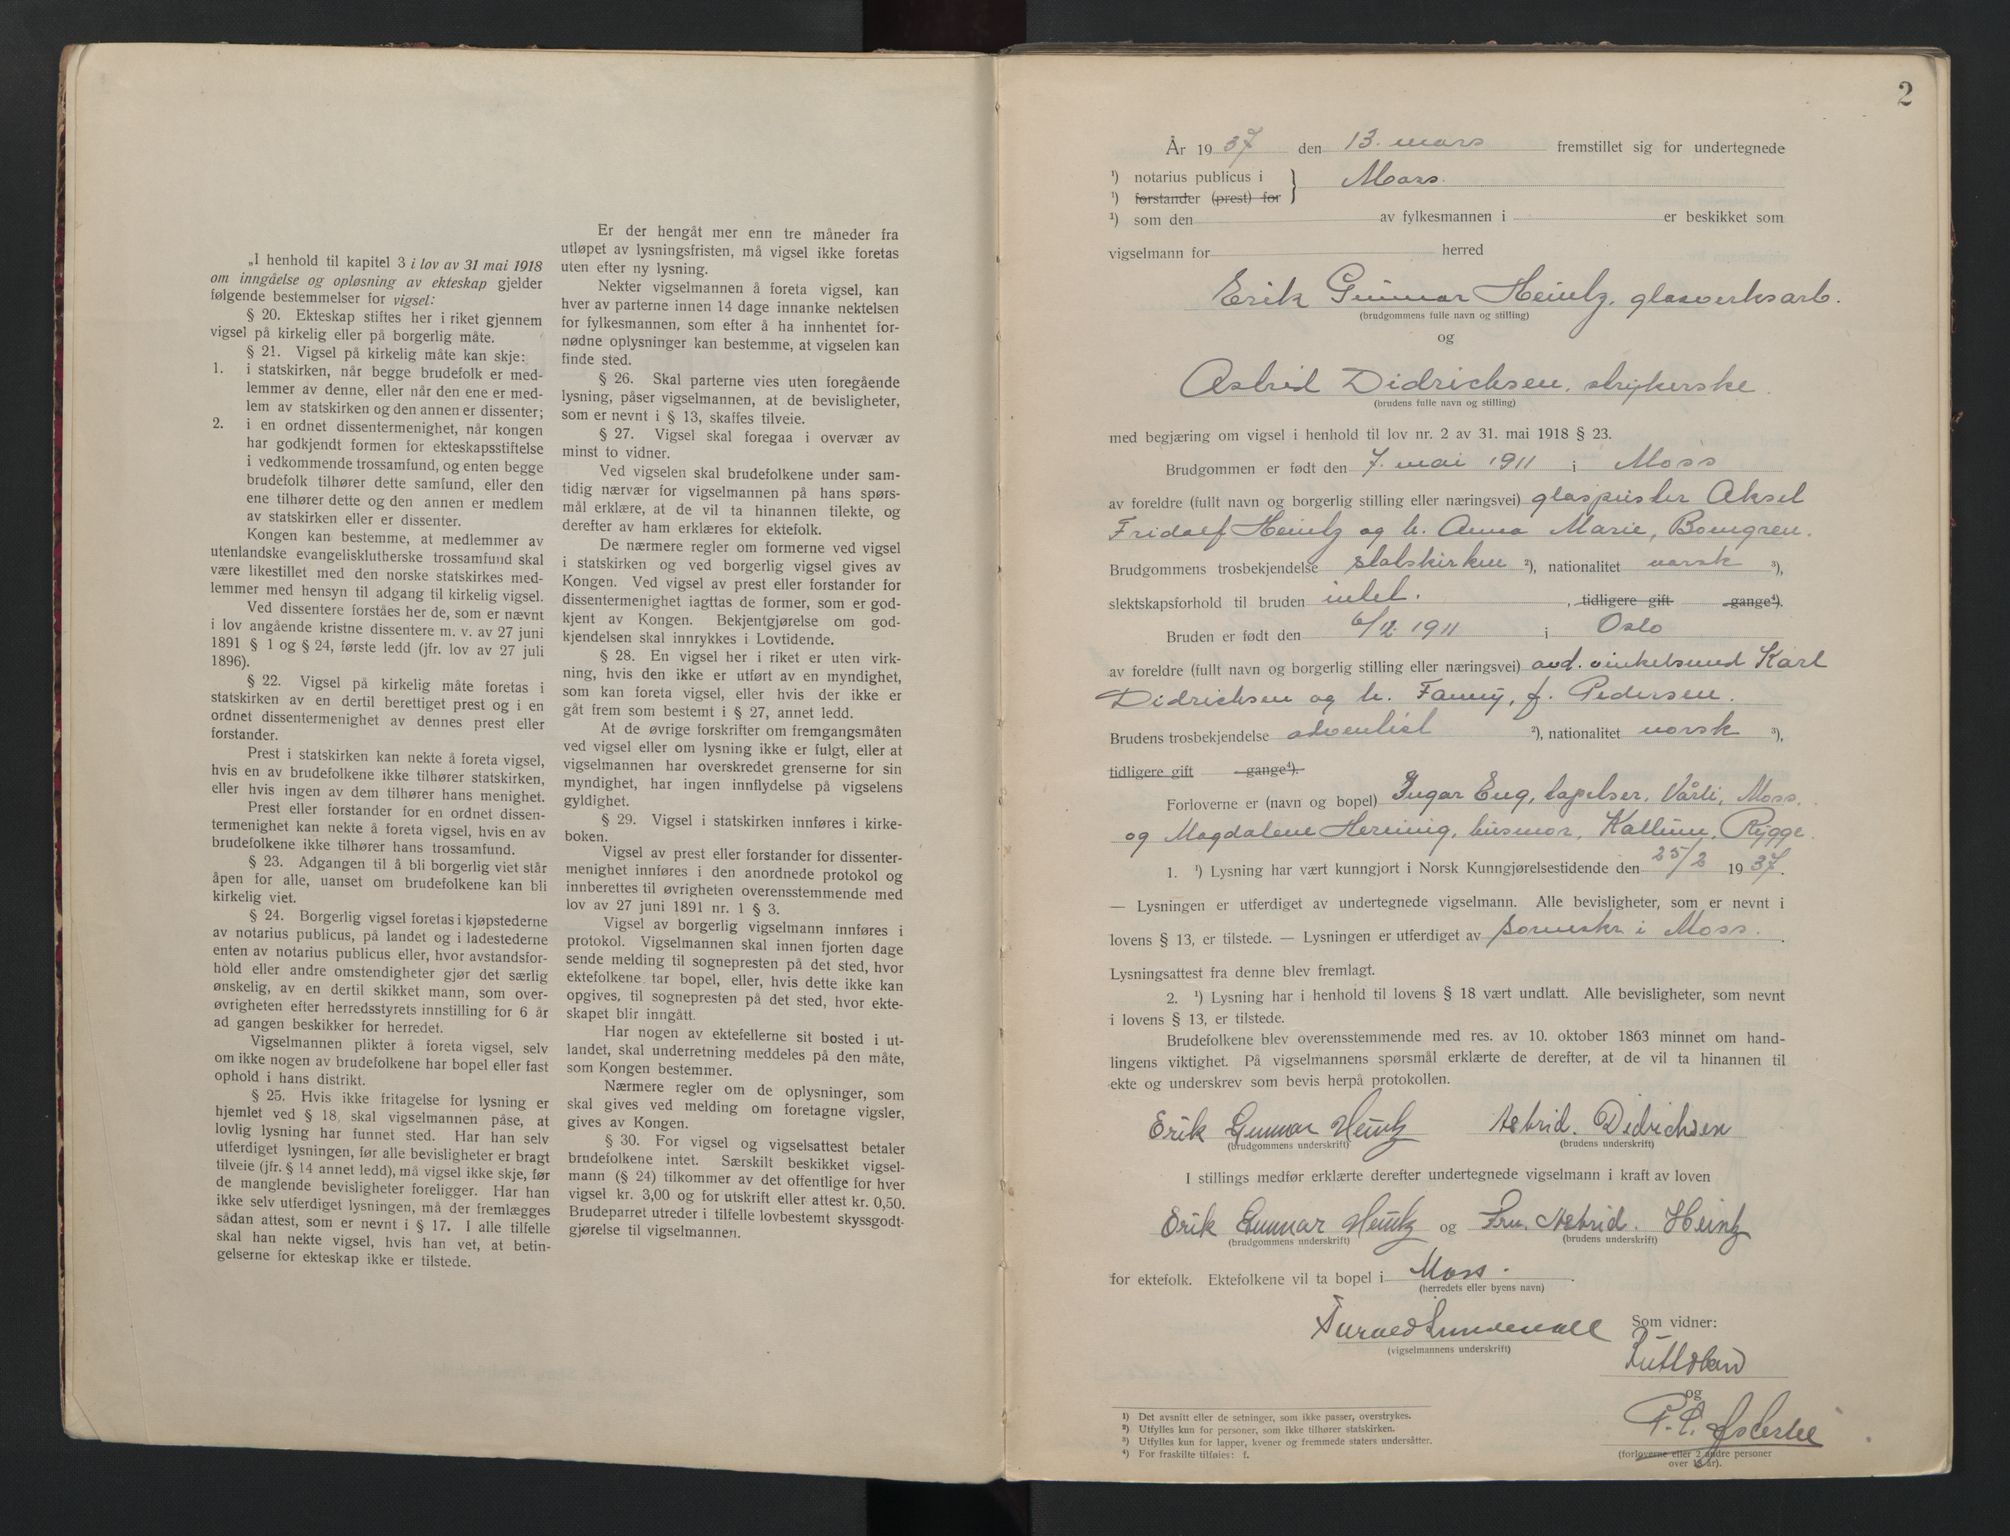 „I henhold til kapitel 3 i lov av 31 mai 1918
om inngåelse og opløsning av ekteskap gjelder
følgende bestemmelser for vigsel:
§ 20. Ekteskap stiftes her i riket gjennem
vigsel på kirkelig eller på borgerlig måte.
§ 21. Vigsel på kirkelig måte kan skje:
1. i statskirken, når begge brudefolk er med-
lemmer av denne, eller når den ene er med-
lem av statskirken og den annen er dissenter;
2. i en ordnet dissentermenighet, når kongen
har godkjendt formen for ekteskapsstiftelse
i vedkommende trossamfund, og enten begge
brudefolk tilhører dette samfund, eller den
ene tilhører dette og den annen er medlem
av statskirken eller er dissenter.
Kongen kan bestemme, at medlemmer av
utenlandske evangelisklutherske trossamfund skal
være likestillet med den norske statskirkes med-
lemmer med hensyn til adgang til kirkelig vigsel.
Ved dissentere forståes her de, som er nævnt
i lov angående kristne dissentere m. v. av 27 juni
1891 § 1 og § 24, første ledd (jfr. lov av 27 juli
1896).
§ 22. Vigsel på kirkelig måte foretas i
statskirken av en dertil berettiget prest og i en
ordnet dissentermenighet av dennes prest eller
forstander.
Prest i statskirken kan nekte å foreta vigsel,
hvis en av brudefolkene ikke tilhører statskirken,
eller hvis ingen av dem tilhører hans menighet.
Prest eller forstander for en ordnet dissen-
termenighet kan nekte å foreta vigsel, hvis en av
brudefolkene ikke tilhører hans trossamfund.
§ 23. Adgangen til å bli borgerlig viet står
åpen for alle, uanset om brudefolkene kan bli
kirkelig viet.
§ 24. Borgerlig vigsel foretas i kjøpstederne
av notarius publicus, på landet og i ladestederne
enten av notarius publicus eller, hvor avstandsfor-
hold eller andre omstendigheter gjør det særlig
ønskelig, av en dertil skikket mann, som over-
øvrigheten efter herredsstyrets innstilling for 6 år
ad gangen beskikker for herredet.
Vigselmannen plikter å foreta vigsel, selv
om ikke nogen av brudefolkene har bopel eller fast
ophold i hans distrikt.
§ 25. Hvis ikke fritagelse for lysning er
hjemlet ved § 18, skal vigselmannen påse, at
lovlig lysning har funnet sted. Har han selv
utferdiget lysningen, før alle bevisligheter er bragt
tilveie (jfr. § 14 annet ledd), må vigsel ikke skje, før
de manglende bevisligheter foreligger. Har han
ikke selv utferdiget lysningen, må der fremlægges
sådan attest, som er nevnt i § 17. I alle tilfelle
skal han nekte vigsel, hvis han vet, at betin-
gelserne for ekteskap ikke er tilstede.
Er der hengåt mer enn tre måneder fra
utløpet av lysningsfristen, må vigsel ikke foretas
uten efter ny lysning.
Nekter vigselmannen å foreta vigsel, kan
hver av parterne innen 14 dage innanke nektelsen
for fylkesmannen, som efter å ha innhentet for-
nødne oplysninger kan bestemme, at vigselen kan
finde sted.
§ 26. Skal parterne vies uten foregående
lysning, påser vigselmannen, at de bevisligheter,
som er nevnt i § 13, skaffes tilveie.
§ 27. Vigsel skal foregaa i overvær av
minst to vidner.
Ved vigselen skal brudefolkene under sam-
tidig nærvær for vigselmannen på hans spørs-
mål erklære, at de vil ta hinannen tilekte, og
derefter av ham erklæres for ektefolk.
De nærmere regler om formerne ved vigsel
i statskirken og ved borgerlig vigsel gives av
Kongen. Ved vigsel av prest eller forstander for
dissentermenighet iagttas de former, som er god-
kjent av Kongen. Bekjentgjørelse om god-
kjendelsen skal innrykkes i Lovtidende.
§ 28. En vigsel her i riket er uten virk-
ning, hvis den ikke er utført av en myndighet,
som kan foreta vigsel, eller hvis der ikke er
gåt frem som bestemt i § 27, annet ledd.
At de øvrige forskrifter om fremgangsmåten
ved vigsel eller om lysning ikke er fulgt, eller at
vigselmannen har overskredet grenserne for sin
myndighet, har ingen innflydelse på vigselens
gyldighet.
§ 29. Vigsel i statskirken innføres i kirke-
boken.
Vigsel av prest eller forstander for dissenter-
menighet innføres i den anordnede protokol og
innberettes til øvrigheten overensstemmende med
lov av 27 juni 1891 nr. 1 § 3.
Vigsel av borgerlig vigselmann innføres i
protokol. Vigselmannen skal innen fjorten dage
sende melding til sognepresten på det sted, hvor
ektefolkene tar bopel, eller, hvis dette ikke kan
opgives, til sognepresten på det sted, hvor ekte-
skapet blir inngått.
Har nogen av ektefellerne sit bosted i ut-
landet, skal underretning meddeles på den måte,
som Kongen bestemmer.
Nærmere regler om de oplysninger, som
skal gives ved melding om foretagne vigsler,
gives av Kongen.
§ 30. For vigsel og vigselsattest betaler
brudefolkene intet. Særskilt beskikket vigsel-
mann (§ 24) tilkommer av det offentlige for hver
vigsel kr. 3,00 og for utskrift eller attest kr. 0,50.
Brudeparret utreder i tilfelle lovbestemt skyssgodt-
gjørelse til vigselmannen.
2
År 1937 den 13. mars fremstillet sig for undertegnede
¹) notarius publicus i } Moss.
¹) forstander (prest) for
¹) som den av fylkesmannen i er beskikket som
vigselmann for herred
Erik Gunnar Heintz, glasverksarb.
(brudgommens fulle navn og stilling)
og
Astrid Didrichsen, strykerske.
(brudens fulle navn og stilling)
med begjæring om vigsel i henhold til lov nr. 2 av 31. mai 1918 § 23.
Brudgommen er født den 7. mai 1911 i Moss
av foreldre (fullt navn og borgerlig stilling eller næringsvei) glaspuster Aksel
Fridolf Heintz og h. Anna Marie, Bomgren.
Brudgommens trosbekjendelse statskirken ²), nationalitet norsk ³),
slektskapsforhold til bruden intet. , tidligere gift gange⁴).
Bruden er født den 6/12. 1911 i Oslo
av foreldre (fullt navn og borgerlig stilling eller næringsvei) avd. vinkelsmed Karl
Didrichsen og h. Fanny, f. Pedersen.
Brudens trosbekjendelse adventist ²), nationalitet norsk ³),
tidligere gift gange⁴).
Forloverne er (navn og bopel) Ingar Eng, tapetser, Vårli, Moss.
og Magdalene Herning, husmor, Kallum, Rygge.
1. ¹) Lysning har vært kunngjort i Norsk Kunngjørelsestidende den 25/2 1937.
— Lysningen er utferdiget av undertegnede vigselmann. Alle bevisligheter, som er nevnt i
lovens § 13, er tilstede. — Lysningen er utferdiget av sorenskr i Moss.
Lysningsattest fra denne blev fremlagt.
2. ¹) Lysning har i henhold til lovens § 18 vært undlatt. Alle bevisligheter, som nevnt
i lovens § 13, er tilstede.
Brudefolkene blev overensstemmende med res. av 10. oktober 1863 minnet om hand-
lingens viktighet. På vigselmannens spørsmål erklærte de derefter, at de vil ta hinannen til
ekte og underskrev som bevis herpå protokollen.
Erik Gunnar Heintz Astrid. Didrichsen
(brudgommens underskrift) (brudens underskrift)
I stillings medfør erklærte derefter undertegnede vigselmann i kraft av loven
Erik Gunnar Heintz og Fru. Astrid. Heintz
(brudgommens underskrift) (brudens underskrift)
for ektefolk. Ektefolkene vil ta bopel i Moss.
(herredets eller byens navn)
Som vidner:
(vigselmannens underskrift)
og
(forloverne eller 2 andre personer
over 18 år).
¹) Det avsnitt eller de setninger, som ikke passer, overstrykes.
²) Utfylles kun for personer, som ikke tilhører statskirken.
³) Utfylles kun for lapper, kvener og fremmede staters undersåtter.
⁴) For fraskilte tilføies: f.